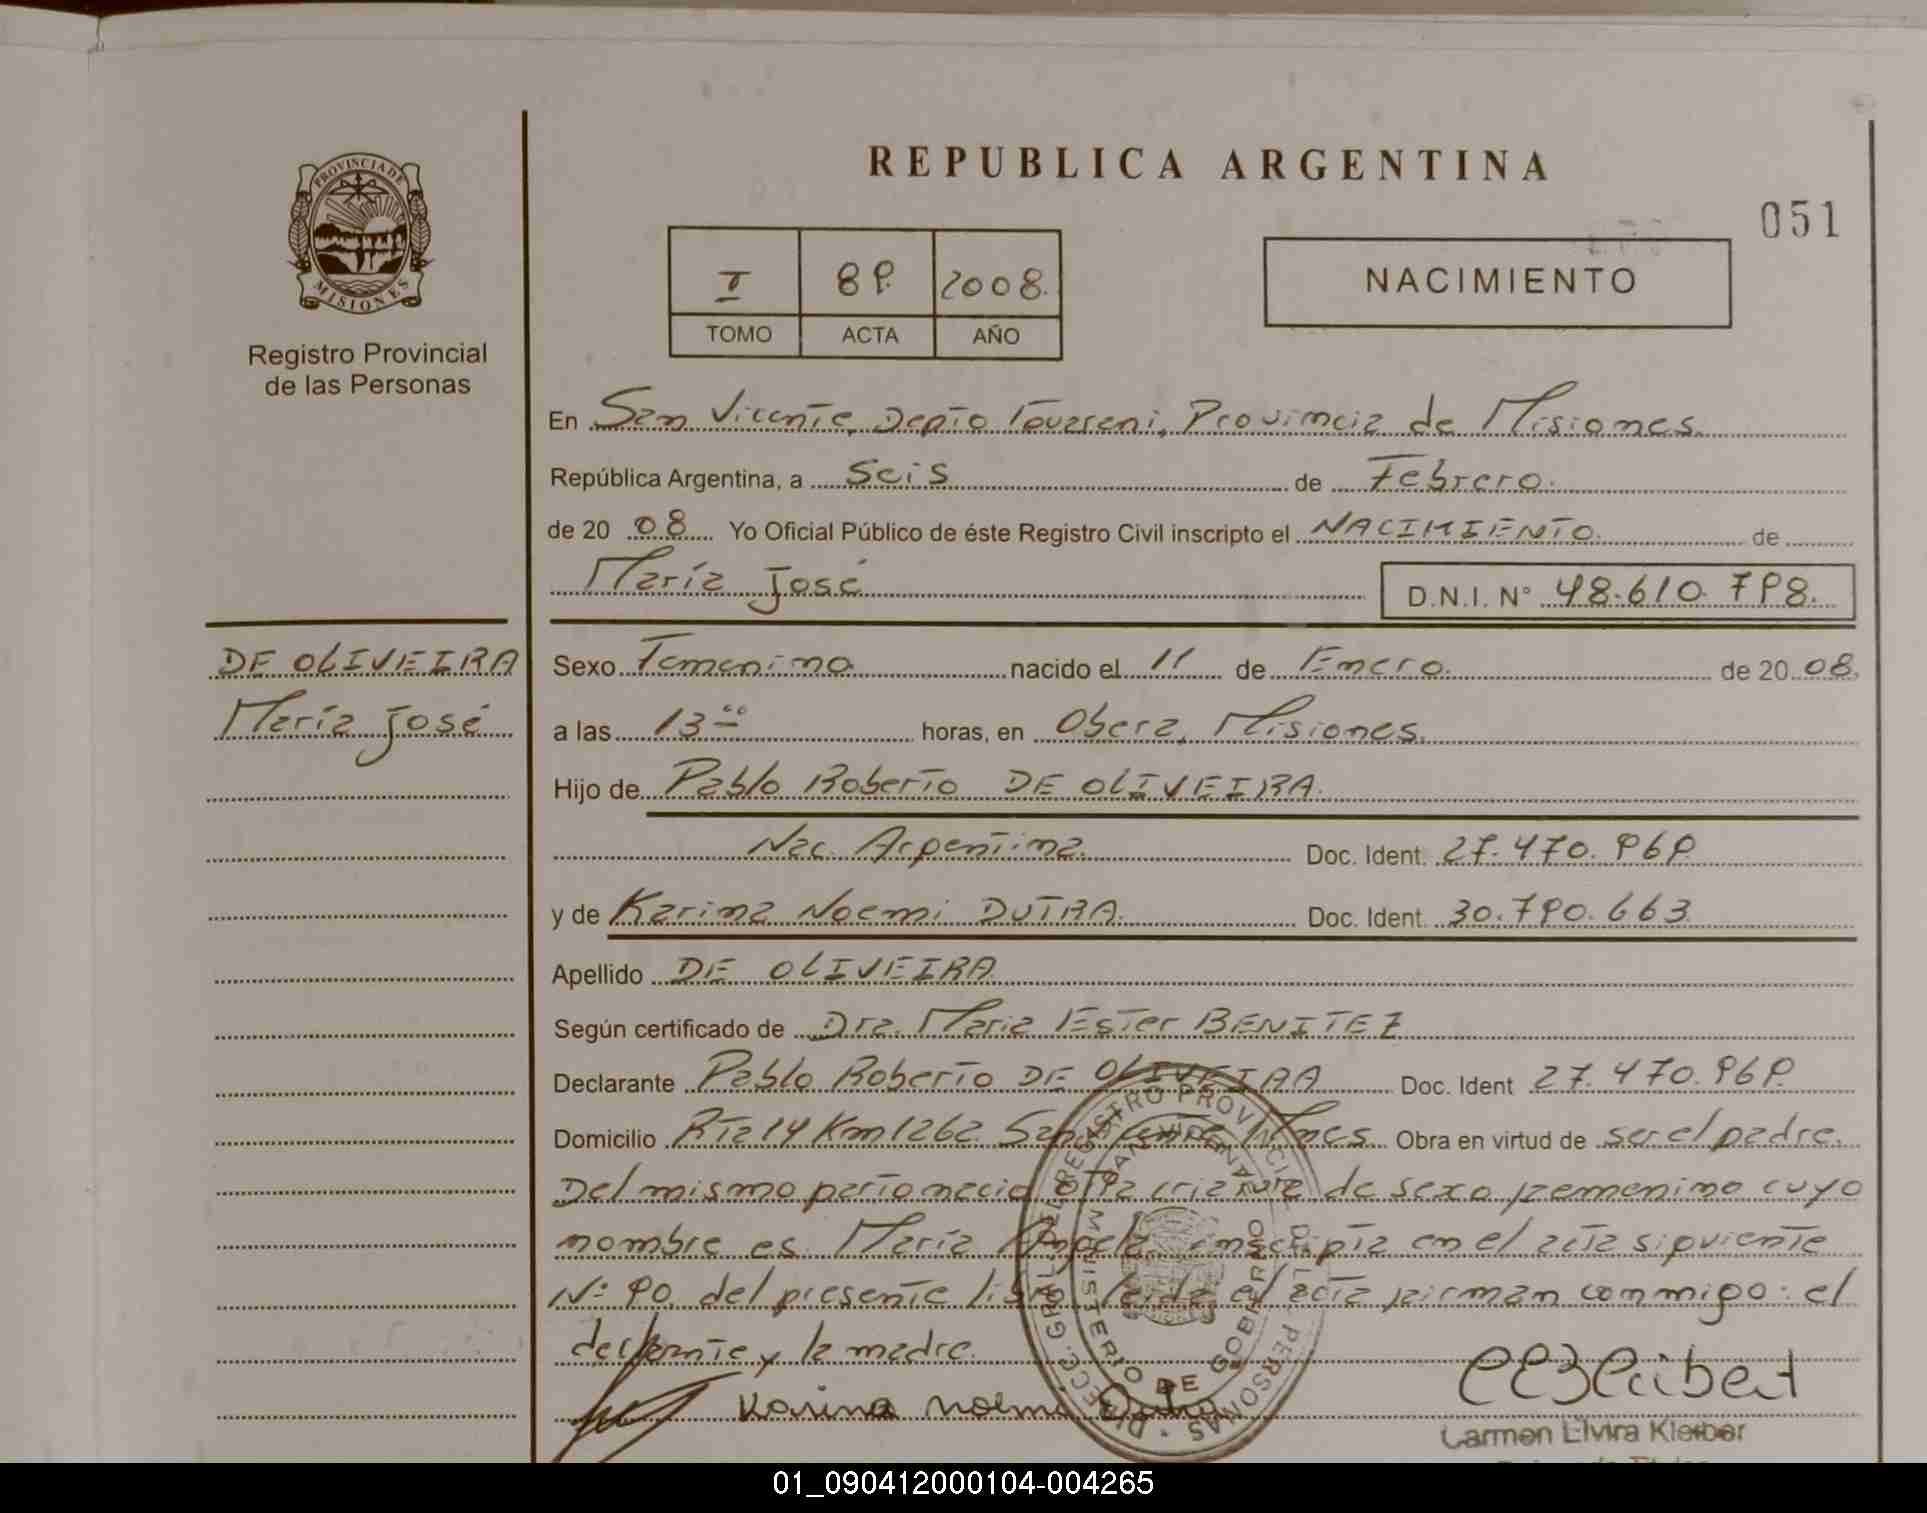 REPUBLICA ARGENTINA
051
PROVINCIA DE
MISIONES
Registro Provincial
de las Personas
I 89 2008.
TOMO ACTA AÑO
NACIMIENTO
En San Vicente, Depto Guaraní, Provincia de Misiones.
República Argentina, a Seis de Febrero.
de 20 08 Yo Oficial Público de éste Registro Civil inscripto el NACIMIENTO. de
María José D.N.I. N° 48.610.798.
DE OLIVEIRA
María José
Sexo Femenino. nacido el 11 de Enero. de 20 08.
a las 13 00 horas, en Obera, Misiones.
Hijo de Pablo Roberto DE OLIVEIRA.
Nac. Argentina. Doc. Ident. 27.470.969
y de Karina Noemi DUTRA. Doc. Ident. 30.790.663
Apellido DE OLIVEIRA
Según certificado de Dra. Maria Ester BENITEZ
Declarante Pablo Roberto DE OLIVEIRA Doc. Ident 27.470.969.
Domicilio Rta 14 Km 1262 San Vicente Mnes Obra en virtud de ser el padre.
Del mismo parto nacio otra criatura de sexo femenino cuyo
nombre es María Angela inscripta en el acta siguiente
N° 90, del presente libro leida el acta firman conmigo: el
declarante y la madre.
Karina Noemi Dutra
Carmen Elvira Kleiber
DIREC. GRAL. DEL REGISTRO PROVINCIAL DE LAS PERSONAS
SAN VICENTE
MINISTERIO DE GOBIERNO
01_090412000104-004265